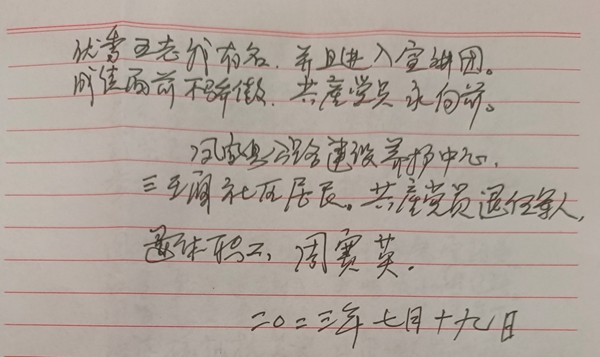 优秀五老我有名．并且进入宣讲团。
成绩面前不骄傲．共產党员永向前。
公路建设养护中心，
社区居民。共產党员退伍军人，
退休职工，周賓英．
二〇二三年七月十九日